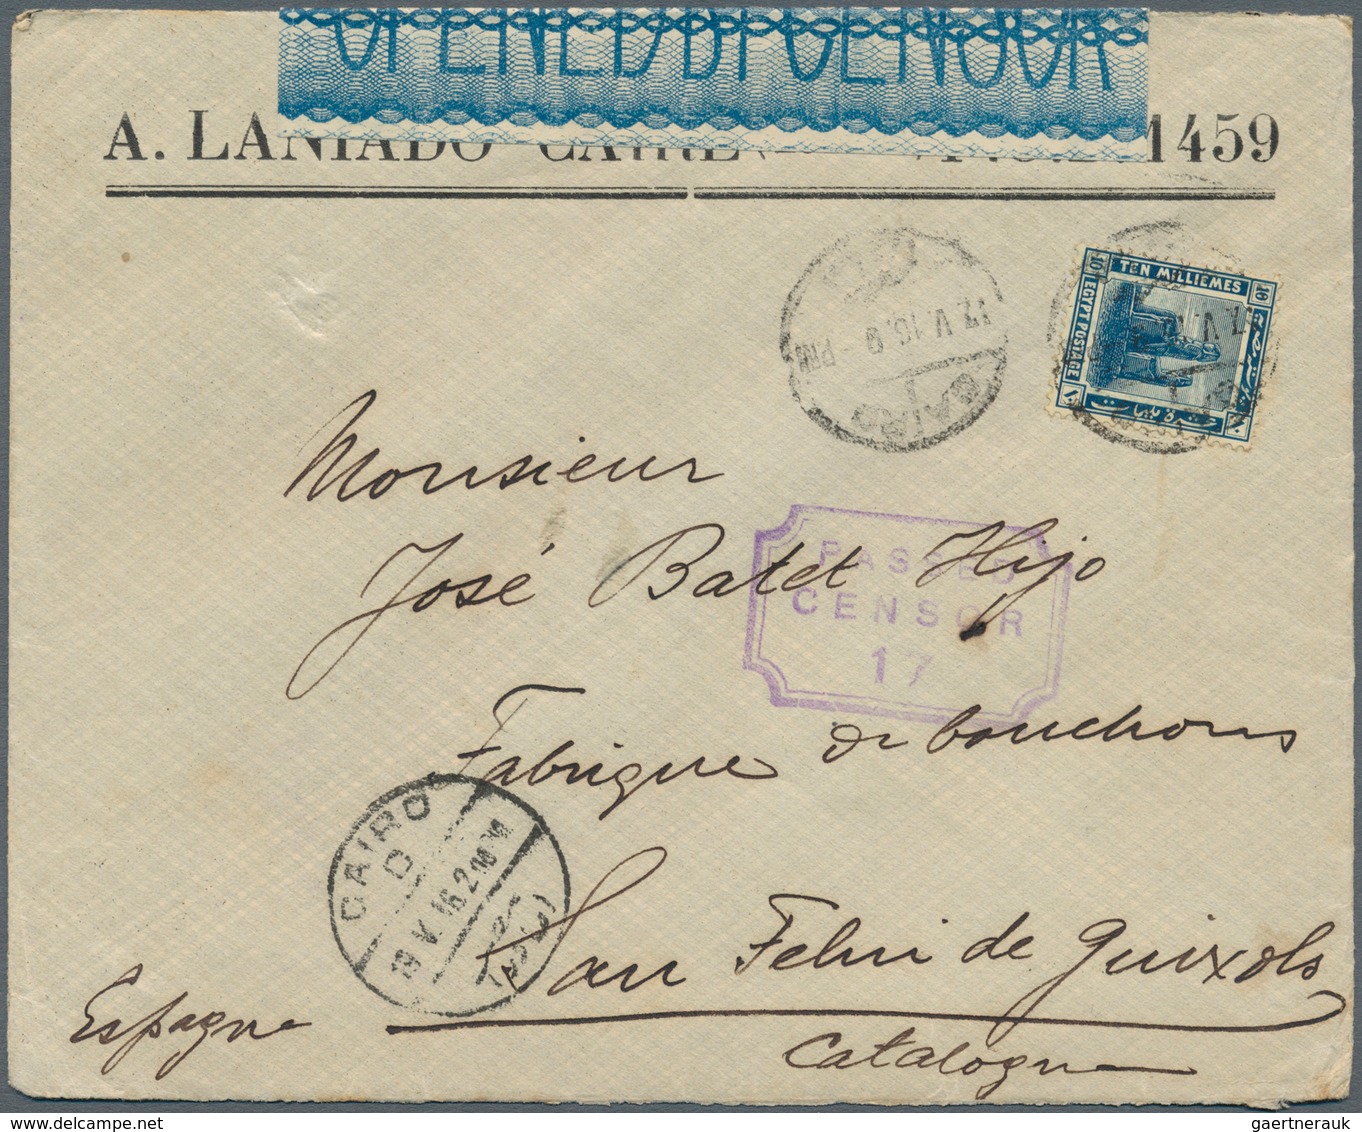 OPENED BY CENSOR
A. LANIADO CAIRE 1459
10 TEN MILLIEMES 10
EGYPT POSTAGE
CAIRO
17 V. 16. 9 - PM
Monsieur
José Batet Hijo
PASSED
CENSOR
17
Fabrique de bouchons
CAIRO
D
18 V. 16. 2
San Feliu de Guixols
Espagne
Catalogne
delcampe.net
gaertnerauk